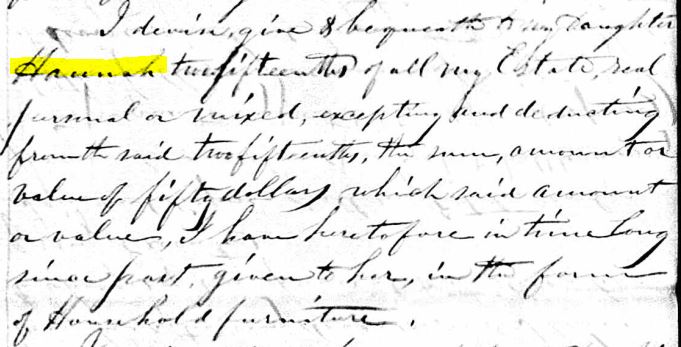 I devise, give & bequeath to my Daughter
Hannah two fifteenths of all my Estate, real
personal or mixed, excepting and deducting
from the said two fifteenths, the sum, amount or
value of fifty dollars, which said amount
or value, I have heretofore in time long
since past, given to her, in the form
of Household furniture.